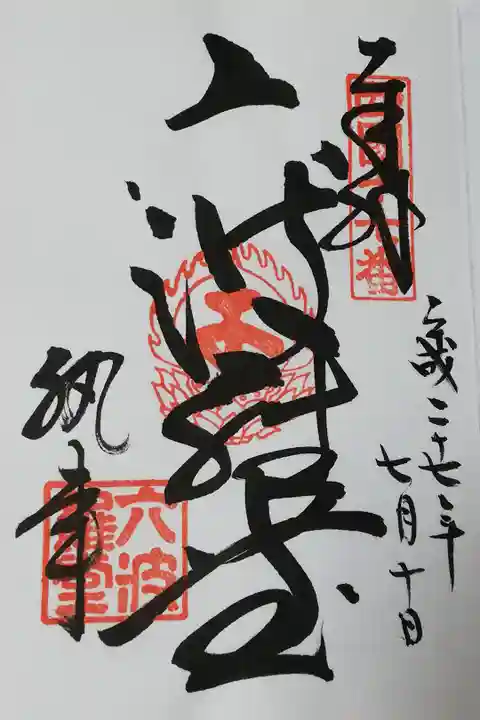 奉拝
西国十七番
平成二十七年
七月十日
六波羅堂
執事
六波
羅堂